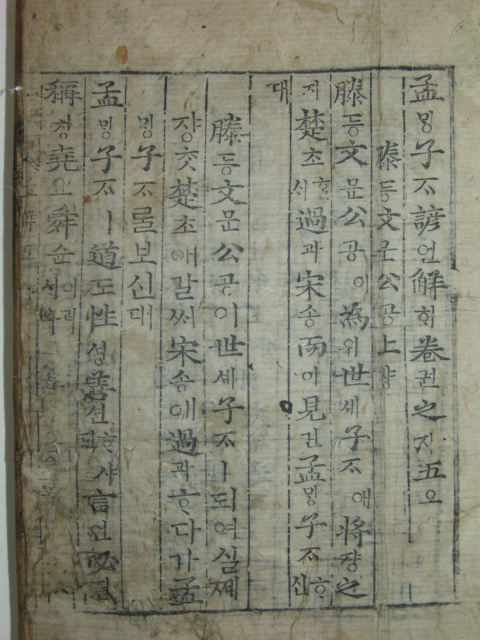 孟멩子ᄌᆞ諺언解ᄒᆡ卷권之지五오
滕등文문公공上샹
滕등文문公공이爲위世셰子ᄌᆞ애將쟝之
지楚초過과宋송而이見견孟멩子ᄌᆞᄒᆞ신
대
滕등文문公공이世셰子ᄌᆞㅣ되여실ᄶᅦ
쟝ᄎᆞᆺ楚초애갈ᄊᆡ宋송애過과ᄒᆞ다가孟
멩子ᄌᆞᄅᆞᆯ보신대
孟멩子ᄌᆞㅣ道도性셩善션ᄒᆞ샤ᄃᆡ言언必필
稱칭堯요舜슌이러시다